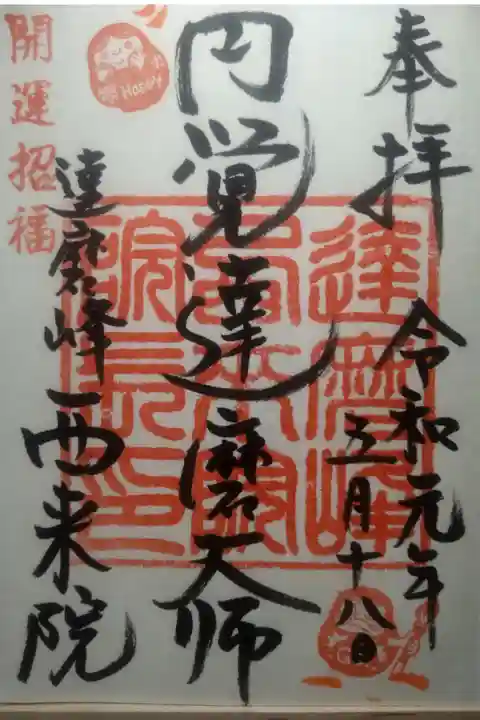 奉拝
令和元年
五月十八日
円覚達磨大師
達磨峰
西来院
開運招福
Happy
達磨峰
院長印